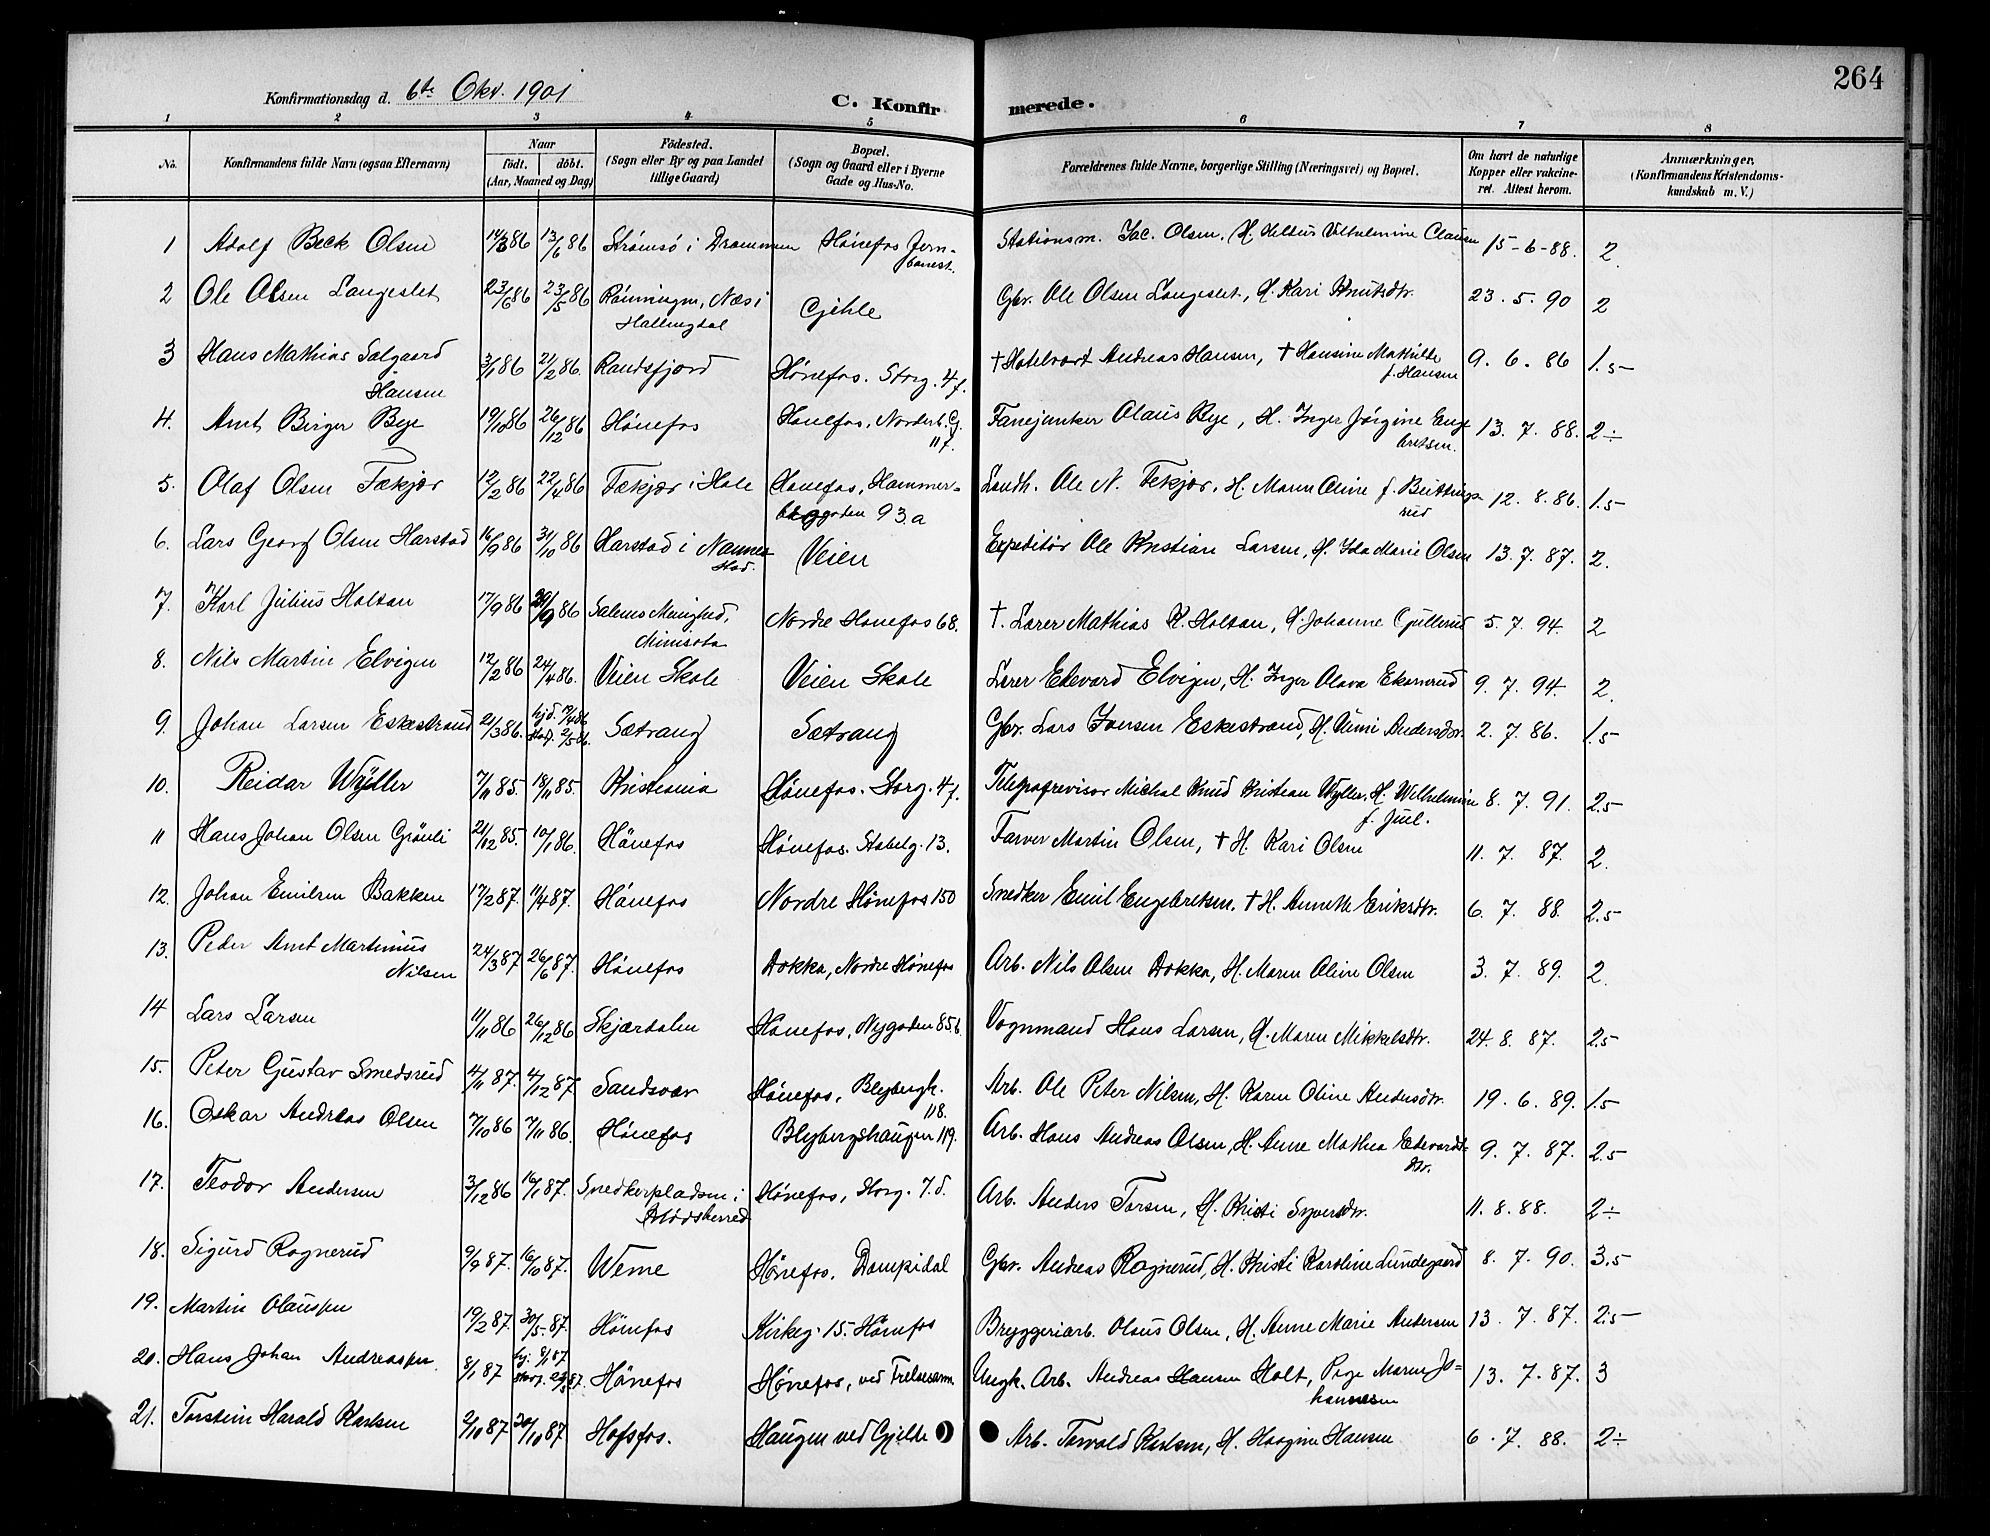 264
Konfirmationsdag d. 6te Okt. 1901
C. Konfirmerede.
1 2 3 4 5 6 7 8
No. Konfirmandens fulde Navn (ogsaa Efternavn) Naar født. døbt. (Aar, Maaned og Dag) Fødested. (Sogn eller By og paa Landet tillige Gaard) Bopæl. (Sogn og Gaard eller i Byerne Gade og Hus-No. Forældrenes fulde Navne, borgerlige Stilling (Næringsvei) og Bopæl. Om havt de naturlige Kopper eller vakcineret. Attest herom. Anmærkninger. (Konfirmandens Kristendomskundskab m. V.)
1 Adolf Beck Olsen 14/3 86 13/6 86 Strømsø i Drammen Hønefos Jernbanest. Stationsm. Jac. Olsen, H. Vilhelmine Clausen 15-6-88. 2.
2 Ole Olsen Langeslet 23/6 86 23/5 86 Rønningen, Næs i Hallingdal Gjehle Gbr. Ole Olsen Langeslet, H. Kari Knutsdtr. 23. 5. 90 2
3 Hans Mathias Solgaard Hansen 3/1 86 21/2 86. Randsfjord Hønefos. Storg. 4f. † Hotelvært Andreas Hansen, † Hansine Mathilde f. Hansen 9. 6. 86 1.5
4. Arnt Birger Bye 19/10 86 26/12 86 Hønefos Hønefos, Norderh.G. 117. Fanejunker Olaus Bye, H. Inger Jørgine Engebretsen. 13. 7. 88. 2÷
5. Olaf Olsen Fækjær 12/2 86 22/4 86 Fækjær i Hole Hønefos, Hammerbroggaden 93.a Landh. Ole N. Fekjær, H. Maren Oline f. Buttingsrud 12. 8. 86. 1.5
6. Lars Georg Olsen Harstad 16/9 86 31/10 86 Harstad i Nannestad. Veien Expeditør Ole Kristian Larsen, H. Ida Marie Olsen 13. 7. 87. 2.
7. Karl Julius Holtan 17/9 86 86 Salems Menighed, Minisota Nordre Hønefos 68. †. Lærer Mathias K. Holtan, H. Johanne Gullerud 5. 7. 94. 2
8. Nils Martin Elvigen 12/2 86 24/4 86. Veien Skole Veien Skole Lærer Edevard Elvigen, H. Inger Olava Ekornrud 9. 7. 94. 2.
9. Johan Larsen Eskestrand 21/3 86. hjd. 12/4 86 stadf. 2/5 86. Sætrang Sætrang Gbr. Lars Iversen Eskestrand, H. Anni Andersdtr. 2. 7. 86. 1.5
10. Reidar Wyller 7/11 85. 18/11 85. Kristiania Hønefos. Storg. 4f. Telegrafrevisor Michal Knud Kristian Wyller, H. Wilhelmine f. Juel. 8. 7. 91. 2.5
11 Hans Johan Olsen Grønli 21/12 85. 10/1 86. Hønefos Hønefos. Stabelg. 13. Farver Martin Olsen, † H. Kari Olsen 11. 7. 87. 2.
12. Johan Emilsen Bakken 17/2 87. 11/4 87. Hønefos Nordre Hønefos 150 Snedker Emil Engebretsen. † H. Annette Eriksdtr. 6. 7. 88. 2.5
13. Peder Arnt Martinius Nilsen 24/3 87 26/6 87. Hønefos Dokka, Nordre Hønefos Arb. Nils Olsen Dokka, H. Maren Oline Olsen 3. 7. 89. 2.
14 Lars Larsen 11/11 86 26/12 86 Skjærdalen Hønefos, Nygaden 85b. Vognmand Hans Larsen, H. Maren Mikkelsdtr. 24. 8. 87. 2.5
15. Peter Gustav Smedsrud 4/11 87. 4/12 87 Sandsvær Hønefos, Blybergh. 118. Arb. Ole Peter Nilsen, H. Karen Oline Andersdtr. 19. 6. 89. 1.5
16. Oskar Andreas Olsen 7/10 86 7/11 86. Hønefos Blybergshaugen 119. Arb. Hans Andreas Olsen, H. Anne Mathea Edevardsdtr. 9. 7. 87. 2.5
17. Teodor Andersen 3/12 86 16/1 87. Snedkerpladsen i Modsherred Hønefos, Storg. 7.d. Arb. Anders Torsen, H. Kristi Syversdtr. 11. 8. 88. 2÷
18. Sigurd Rognerud 9/9 87. 16/10 87. Werne Hønefos, Dampsdal Gbr. Andreas Rognerud, H. Kristi Karoline Lundegaard 8. 7. 90. 3.5
19. Martin Olaussen 19/2 87. 30/5 87. Hønefos Kirkeg. 15. Hønefos Bryggeriarb. Olaus Olsen, H. Anne Marie Andersen 13. 7. 87. 2.5
20. Hans Johan Andreassen 8/1 87 hj. 9/1 87. 87. Hønefos Hønefos, ved Frelsesarm. Ungk. Arb. Andreas Hansen Holt, Pige Maren Johannesen 13. 7. 87. 3
21. Torstein Harald Karlsen 2/10 87 30/10 87 Hofsfos. Haugen ved Gjelde Arb. Torvald Karlsen, H. Hansen 6. 7. 88. 2÷